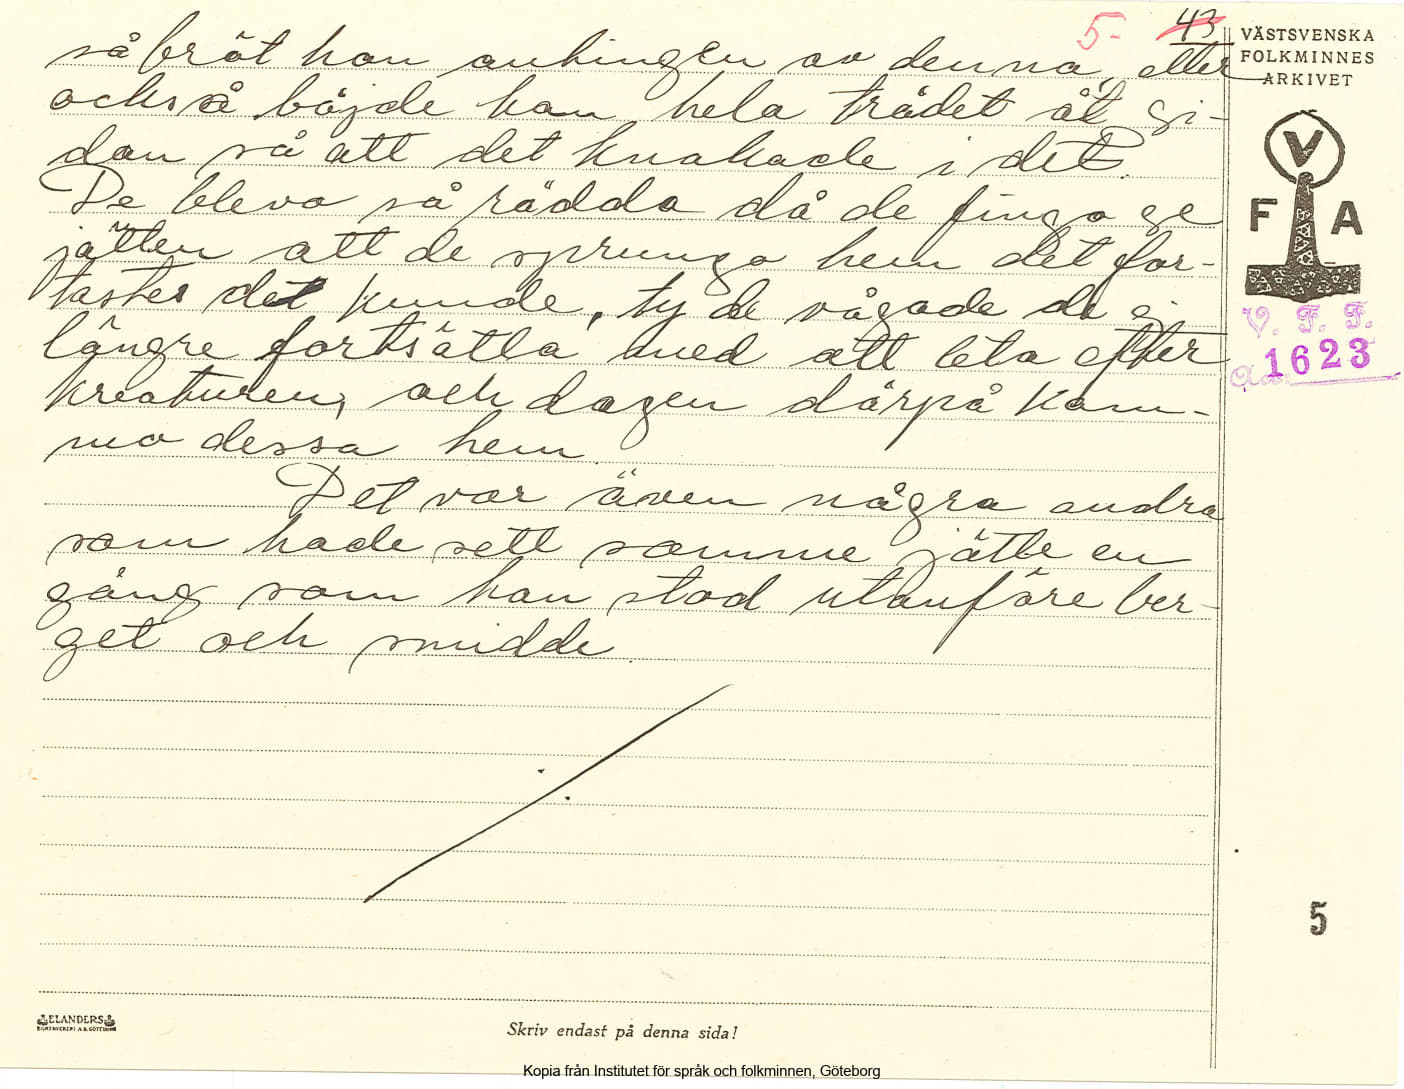 5- 43
så bröt han antingen av denna, eller
också böjde han hela trädet åt si-
dan så att det knakade i det.
De blevo så rädda då de fingo se
jätten att de sprungo hem det for-
tastes det kunde, ty de vågade de ej
längre fortsätta med att leta efter
kreaturen, och dagen därpå kom-
mo dessa hem.
Det var även några andra
som hade sett samme jätte en
gång som han stod utanföre ber-
get och smidde.
VÄSTSVENSKA
FOLKMINNES
ARKIVET
V
F A
V. F. F.
1623
5
ELANDERS
BOKTRYCKERI A.B. GÖTEBORG
Skriv endast på denna sida!
Kopia från Institutet för språk och folkminnen, Göteborg